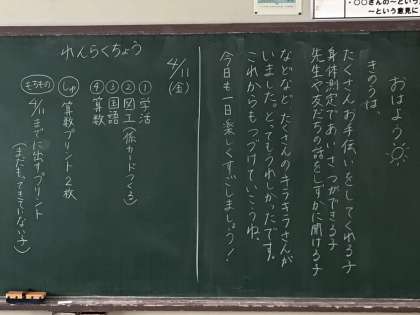 ・○○さんの～という
～という意見に
おはよう
きのうは、
たくさんお手伝いをしてくれる子
身体測定であいさつができる子
先生や友だちの話をしずかに聞ける子
などなど たくさんのキラキラさんが
いました。とってもうれしかったです。
これからもつづけていこうね。
今日も一日楽しくすごしましょう！
れんらくちょう
4/11
(金)
①学活
②図工(係カードつくる)
③国語
④算数
しゅ 算数プリント2枚
もちもの 4/11までに出すプリント
(まだもってきていない子)